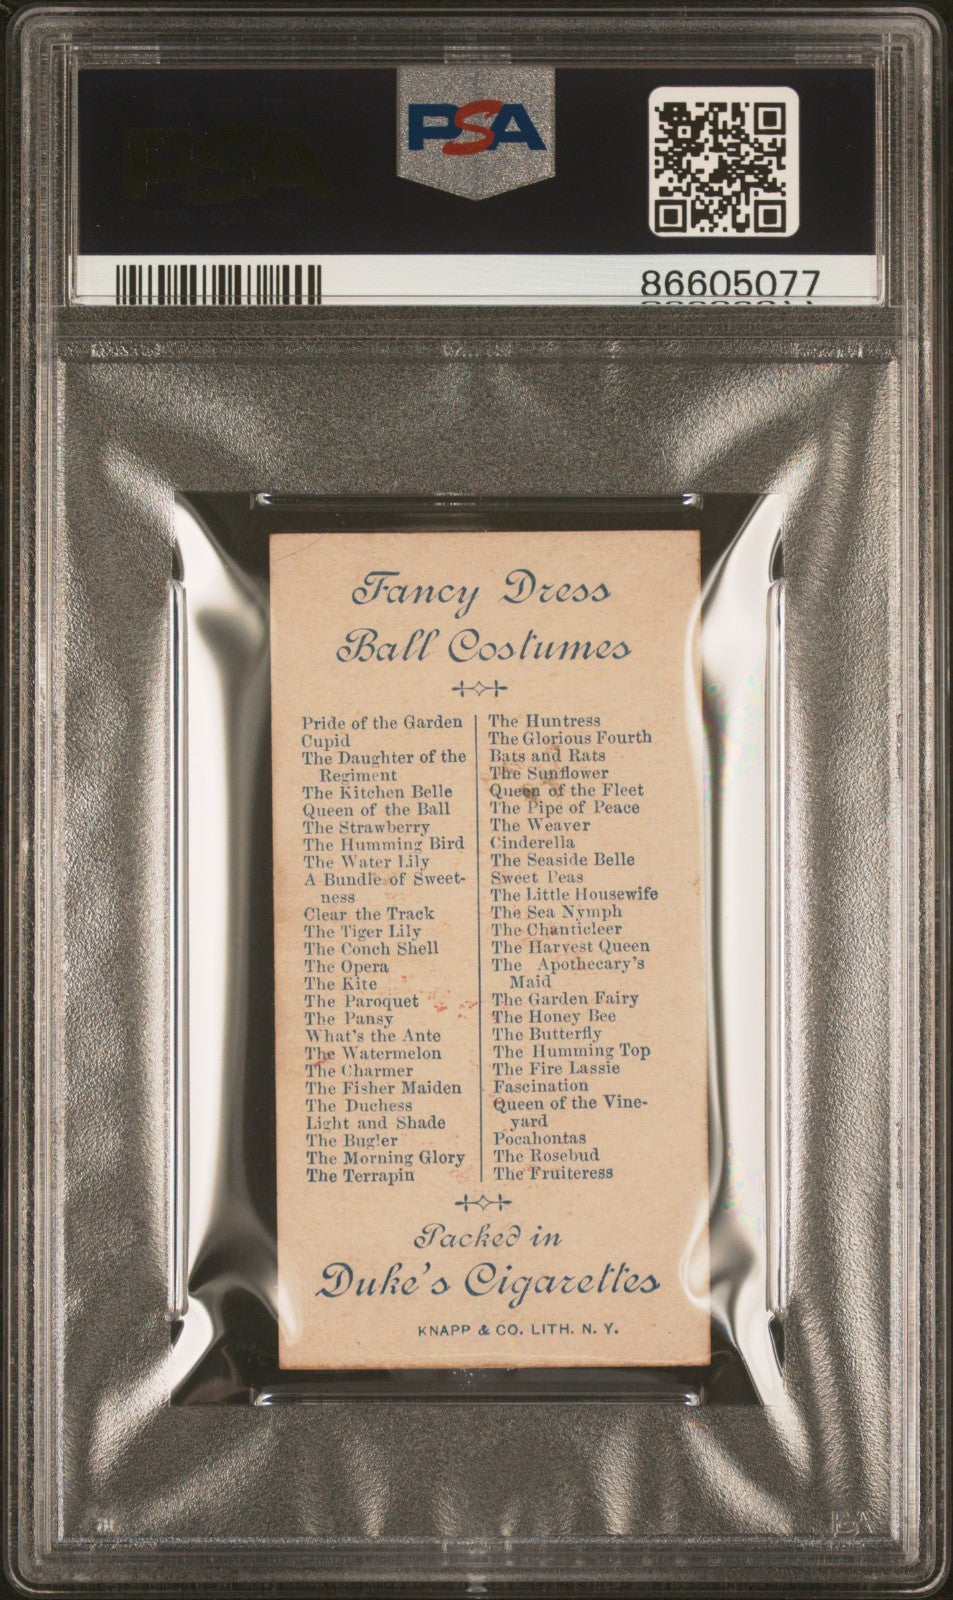 PSA
86605077
Fancy Dress
Ball Costumes
Pride of the Garden
Cupid
The Daughter of the
Regiment
The Kitchen Belle
Queen of the Ball
The Strawberry
The Humming Bird
The Water Lily
A Bundle of Sweet-
ness
Clear the Track
The Tiger Lily
The Conch Shell
The Opera
The Kite
The Paroquet
The Pansy
What's the Ante
The Watermelon
The Charmer
The Fisher Maiden
The Duchess
Light and Shade
The Bugler
The Morning Glory
The Terrapin
The Huntress
The Glorious Fourth
Bats and Rats
The Sunflower
Queen of the Fleet
The Pipe of Peace
The Weaver
Cinderella
The Seaside Belle
Sweet Peas
The Little Housewife
The Sea Nymph
The Chanticleer
The Harvest Queen
The Apothecary's
Maid
The Garden Fairy
The Honey Bee
The Butterfly
The Humming Top
The Fire Lassie
Fascination
Queen of the Vine-
yard
Pocahontas
The Rosebud
The Fruiteress
Packed in
Duke's Cigarettes
KNAPP & CO. LITH. N. Y.